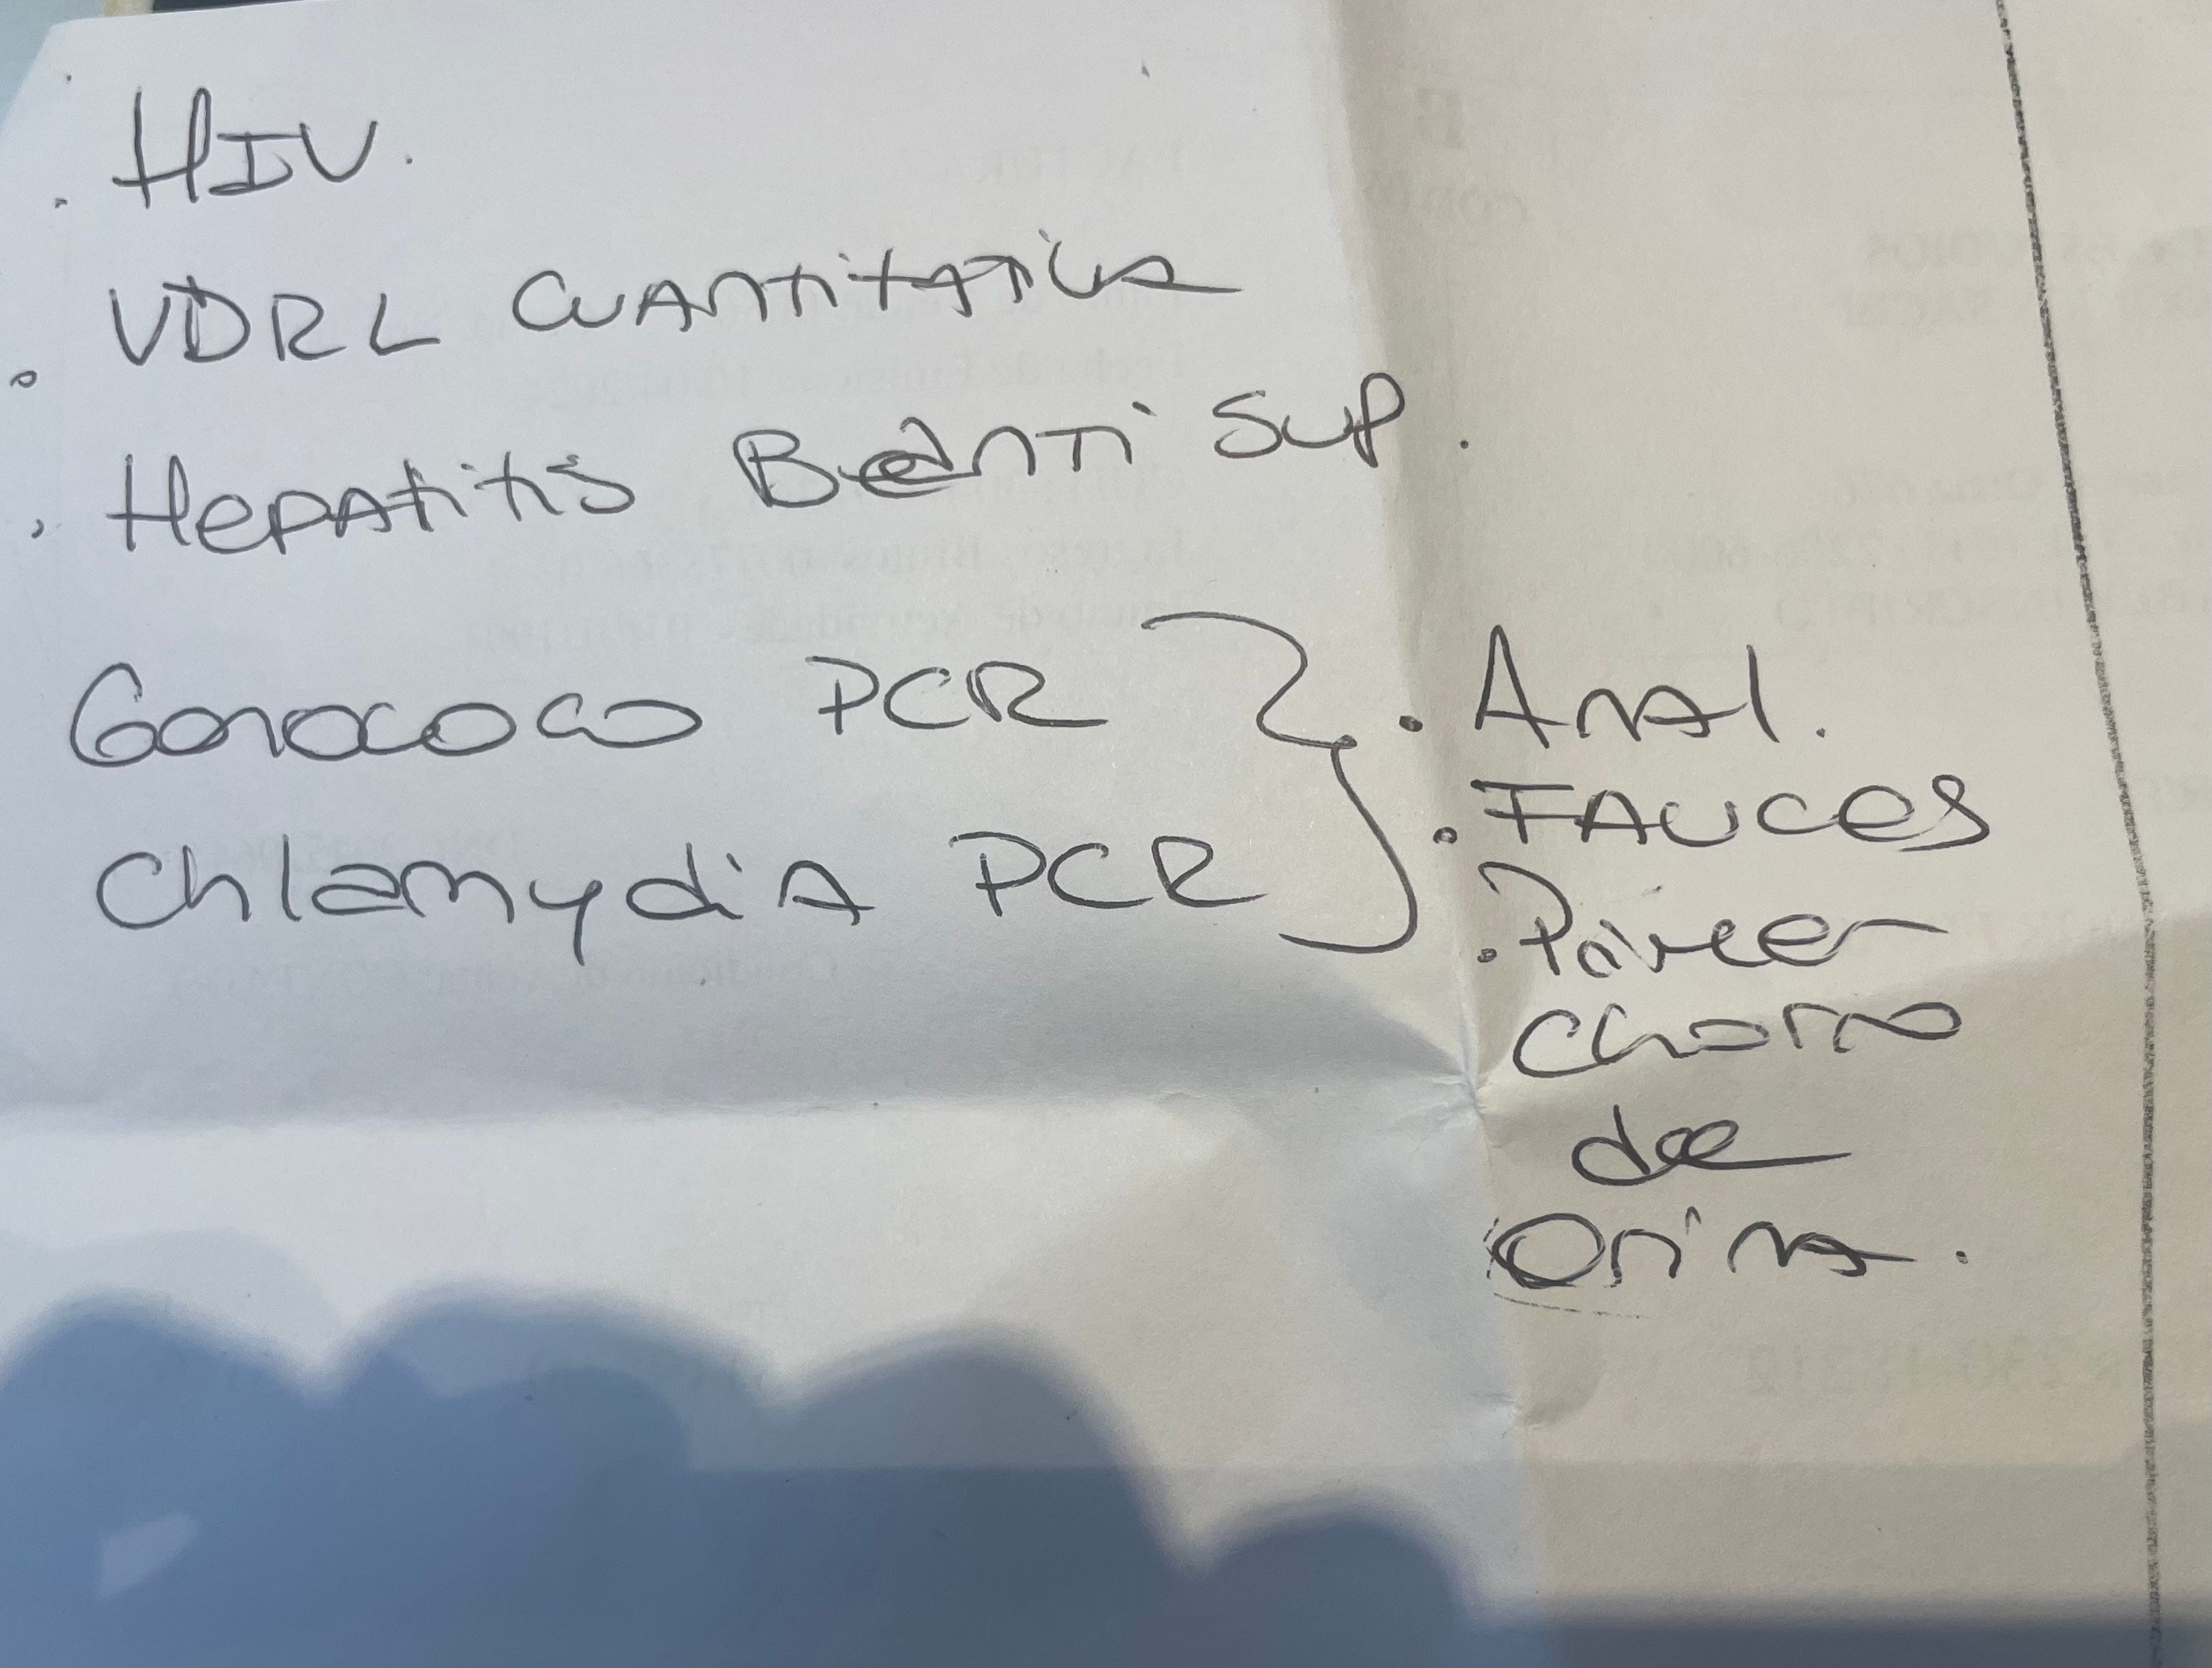 . HIV.
. VDRL CUANTITATIVA
. HEPATITIS B ANTI SUP.
Gonococo PCR
Chlamydia PCR
. Anal.
. FAUCES
. Primer
Chorro
de
Orina.